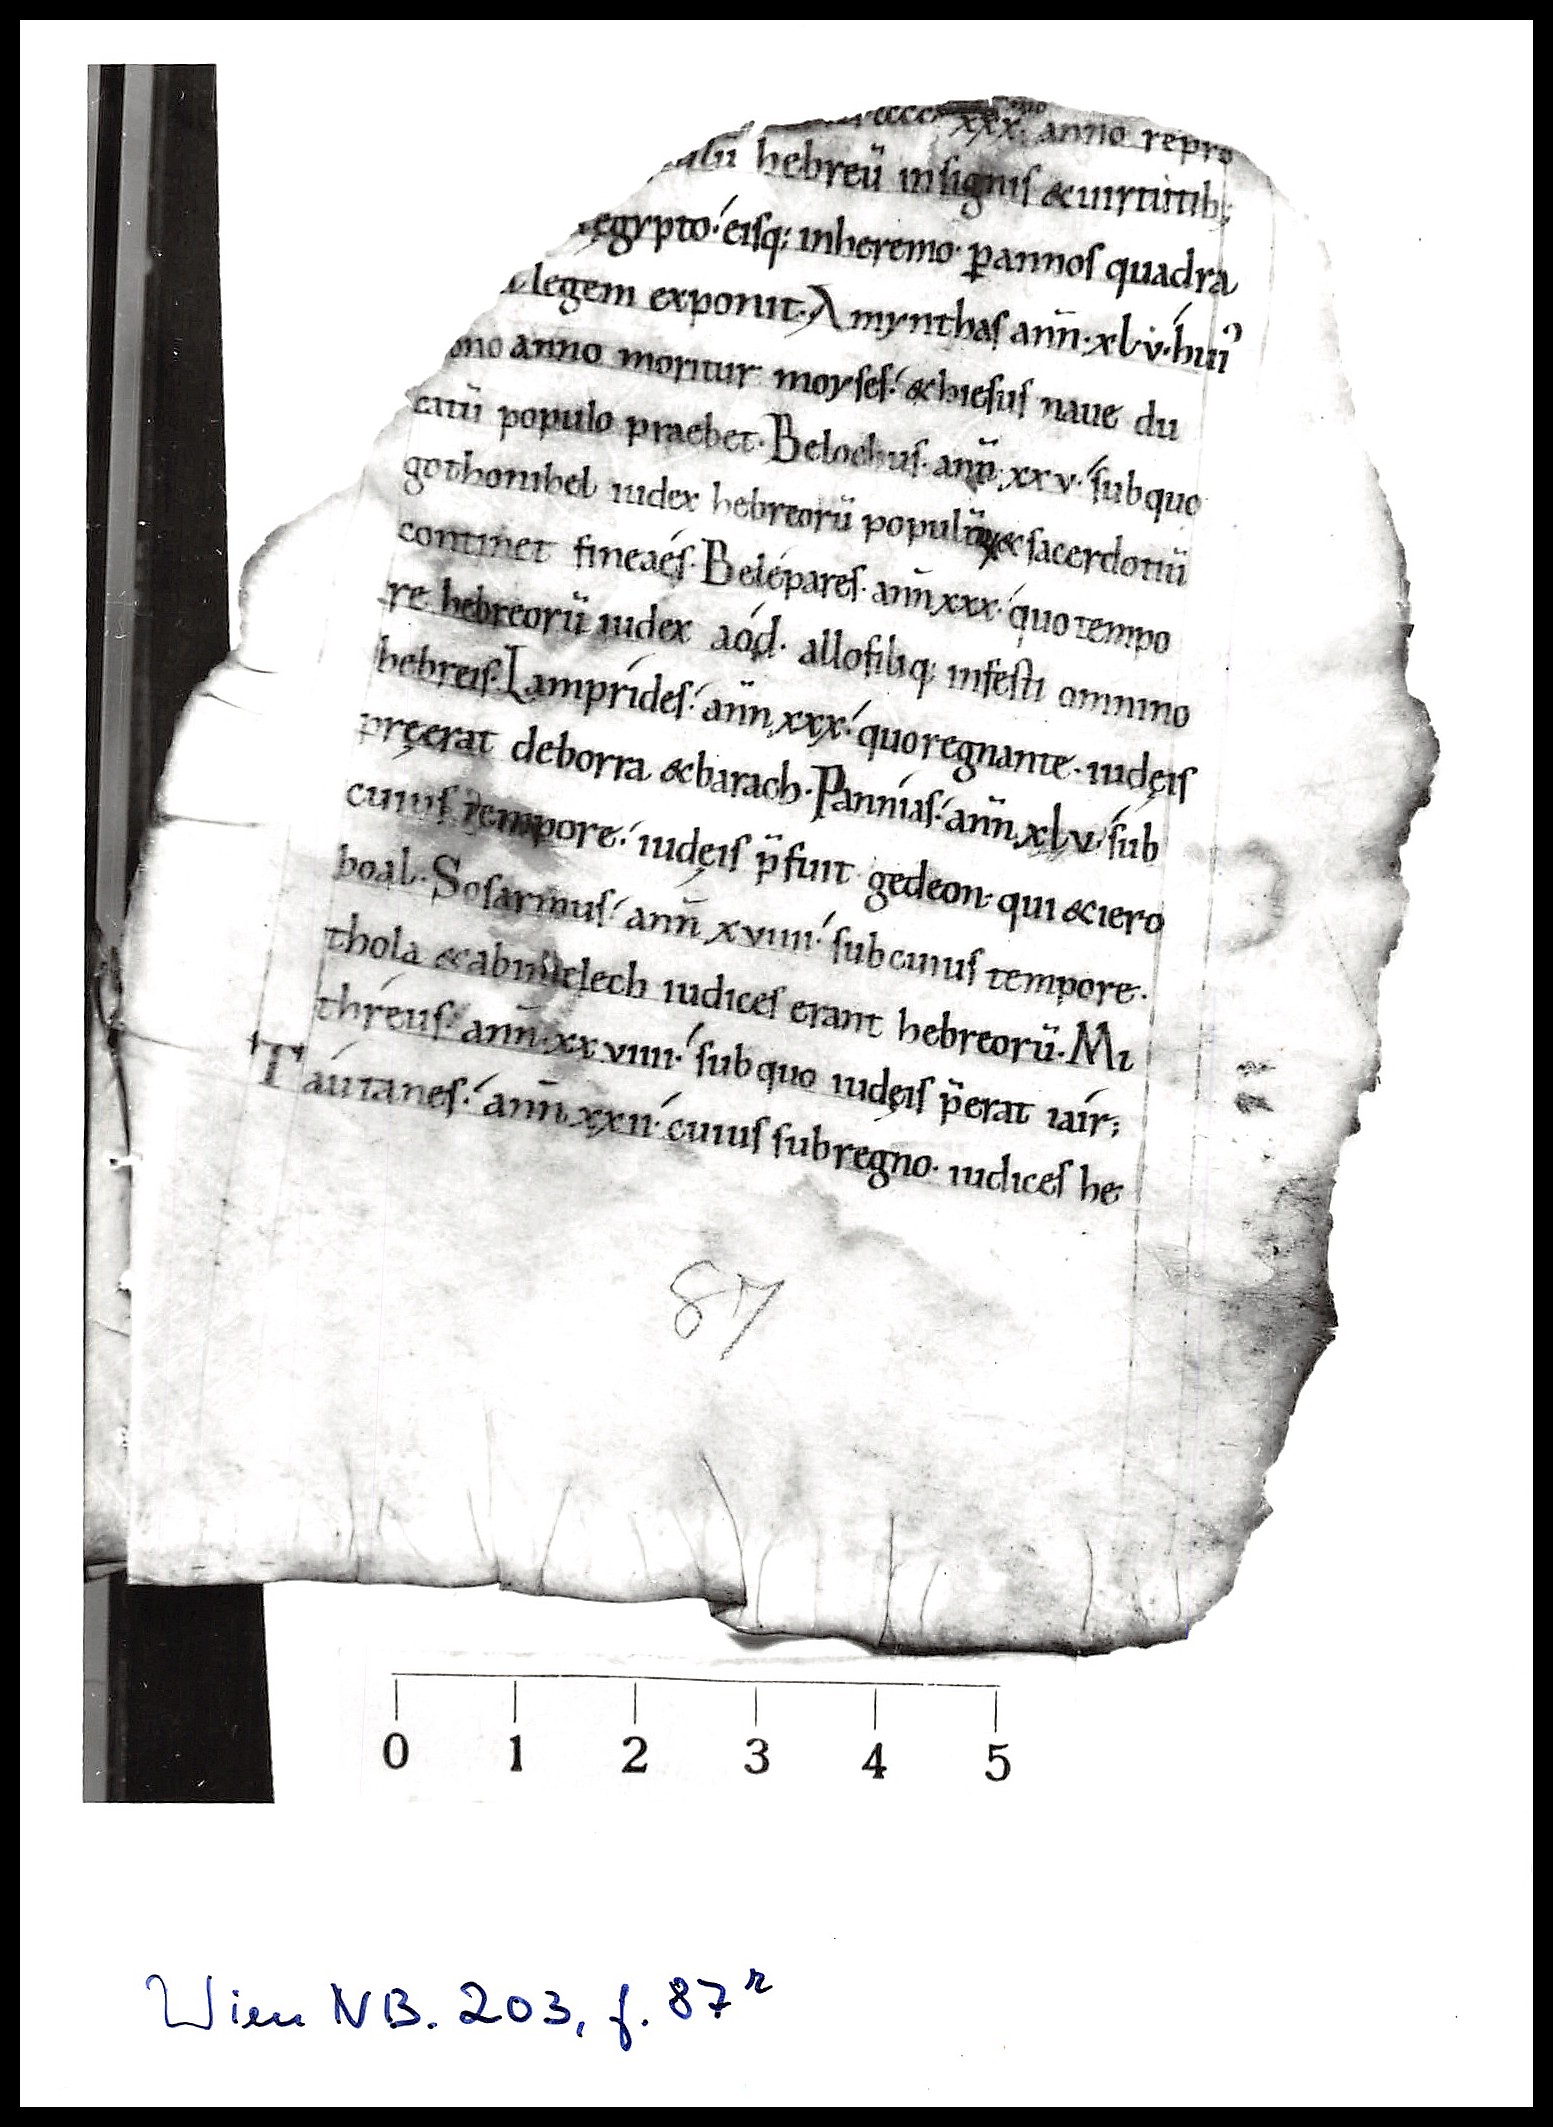 cccc xxx. anno repro
hebreū insignis & uirtutib;
egypto. eisq; inheremo. ꝑannos quadra
legem exponit. Amynthas ann̄. xlv. hui⁹
ono anno moritur moyses. & hiesus naue du
catū populo praebet. Belochus. ann̄. xxv. sub quo
gothonihel iudex hebreorū populū & sacerdotiū
continet fineaés. Belépares. ann̄ xxx. quo tempo
re hebreorū iudex aód. allofiliq; infesti omnino
hebreis. Lamprídes. ann̄ xxx. quo regnante. iudęis
pręerat deborra & barach. Pannías. ann̄ xlv. sub
cuius tempore. iudęis p̄fuit gedeon. qui & iero
boal. Sosarmus. ann̄ xviiii. sub cuius tempore.
thola & abimelech iudices erant hebreorū. Mi
thréus. ann̄. xxviiii. sub quo iudęis p̄erat iaír;
Táutanes. ann̄ xxii. cuius sub regno. iudices he
87
0 1 2 3 4 5
Wien NB. 203, f. 87ʳ